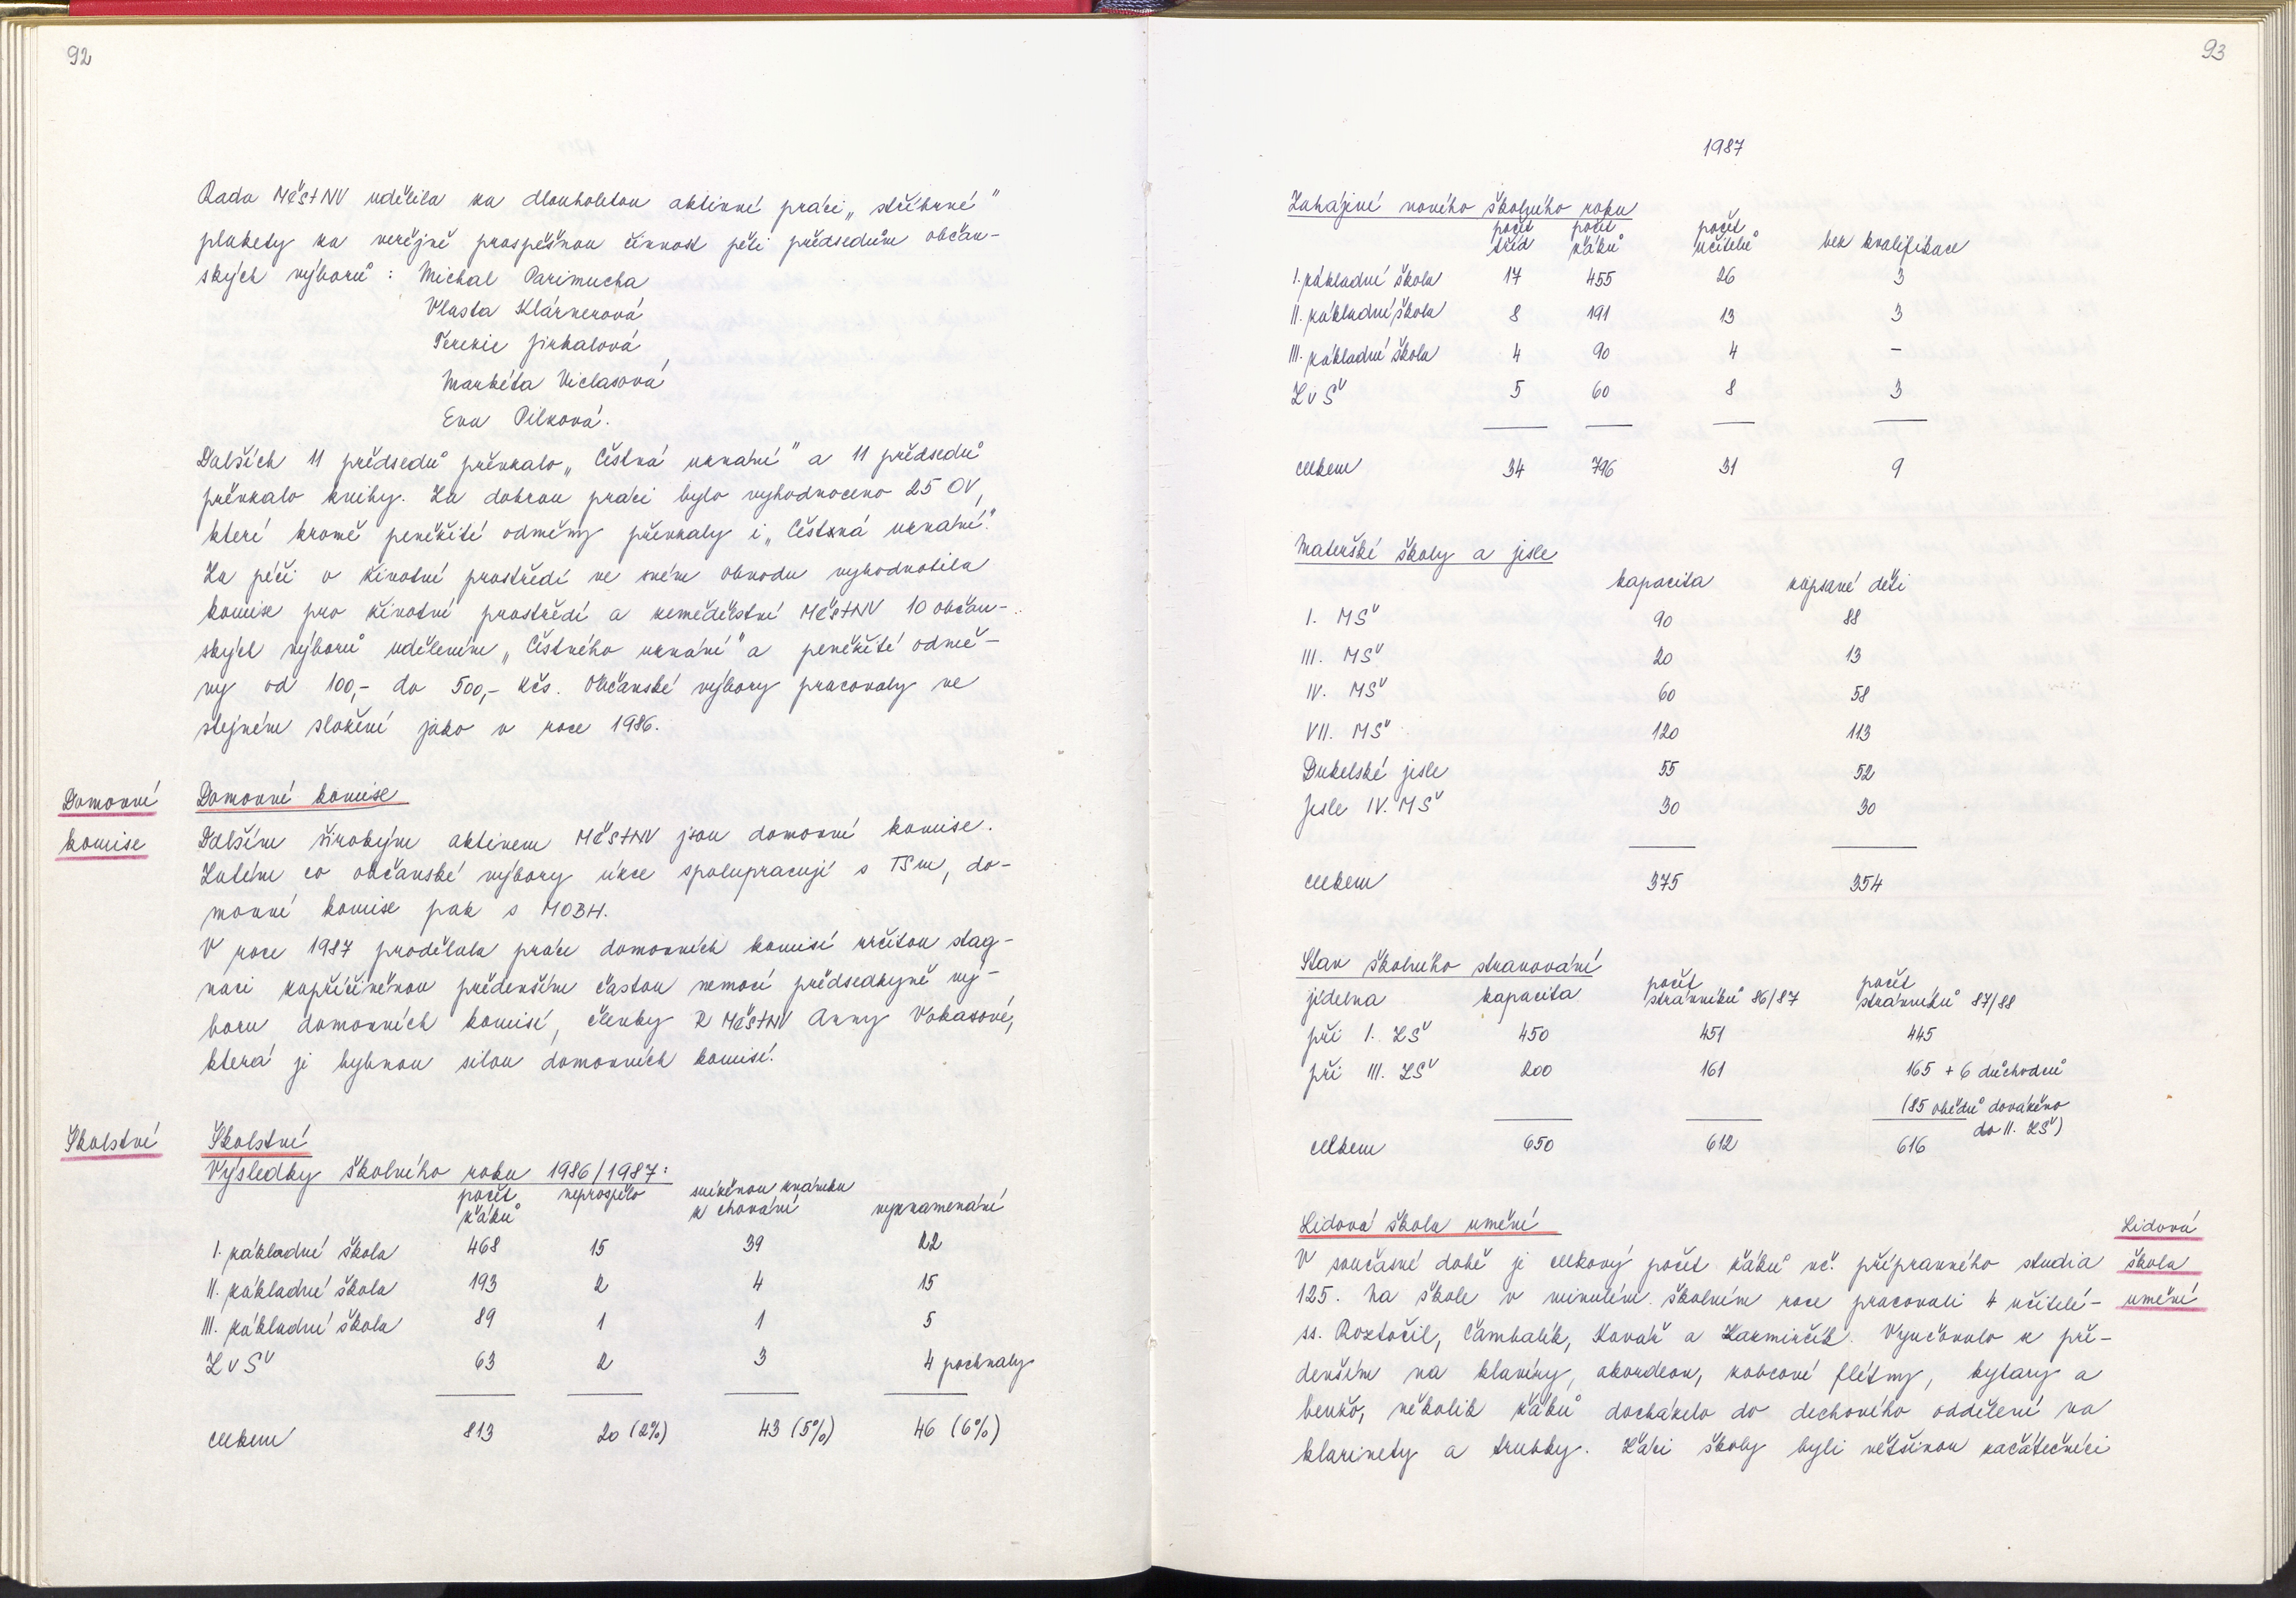 92
Rada MěstNV udělila za dlouholetou aktivní práci „stříbrné"
plakety za veřejně prospěšnou činnost pěti předsedům občan-
ských výborů : Michal Parimucha
Vlasta Klárnerová
Terezie Jirkalová,
Markéta Viclasová
Eva Pilková.
Dalších 11 předsedů převzalo „Čestná uznání" a 11 předsedů
převzalo knihy. Za dobrou práci bylo vyhodnoceno 25 OV,
které kromě peněžité odměny převzaly i „Čestná uznání".
Za péči o životní prostředí ve svém obvodu vyhodnotila
komise pro životní prostředí a zemědělství MěstNV 10 občan-
ských výborů udělením „Čestného uznání" a peněžité odmě-
ny od 100,- do 500,- Kčs. Občanské výbory pracovaly ve
stejném složení jako v roce 1986.
Domovní
komise
Domovní komise
Dalším širokým aktivem MěstNV jsou domovní komise.
Zatím co občanské výbory úzce spolupracují s TSm, do-
movní komise pak s MOBH.
V roce 1987 prodělala práce domovních komisí určitou stag-
naci zapříčiněnou především častou nemocí předsedkyně vý-
boru domovních komisí, členky R MěstNV Anny Vokasové,
která je hybnou silou domovních komisí.
Školství
Školství
Výsledky školního roku 1986/1987:
počet žáků neprospělo sníženou známku z chování vyznamenání
I. základní škola 468 15 39 22
II. základní škola 193 2 4 15
III. základní škola 89 1 1 5
ZvŠ 63 2 3 4 pochvaly
celkem 813 20 (2%) 43 (5%) 46 (6%)
93
1987
Zahájení nového školního roku
počet tříd počet žáků počet učitelů bez kvalifikace
I. základní škola 17 455 26 3
II. základní škola 8 191 13 3
III. základní škola 4 90 4 –
ZvŠ 5 60 8 3
celkem 34 796 31 9
Mateřské školy a jesle
kapacita zapsané děti
I. MŠ 90 88
III. MŠ 20 13
IV. MŠ 60 58
VII. MŠ 120 113
Dukelské jesle 55 52
Jesle IV. MŠ 30 30
celkem 375 354
Stav školního stravování
jídelna kapacita počet strávníků 86/87 počet strávníků 87/88
při I. ZŠ 450 451 445
při III. ZŠ 200 161 165 + 6 důchodců
(85 obědů dováženo
do II. ZŠ)
celkem 650 612 616
Lidová škola umění
Lidová
škola
umění
V současné době je celkový počet žáků vč. přípravného studia
125. Na škole v minulém školním roce pracovali 4 učitelé-
ss. Roztočil, Čambalík, Kovář a Kazmirčík. Vyučovalo se pře-
devším na klavíry, akordeon, zobcové flétny, kytary a
benžo, několik žáků docházelo do dechového oddělení na
klarinety a trubky. Žáci školy byli většinou začátečníci